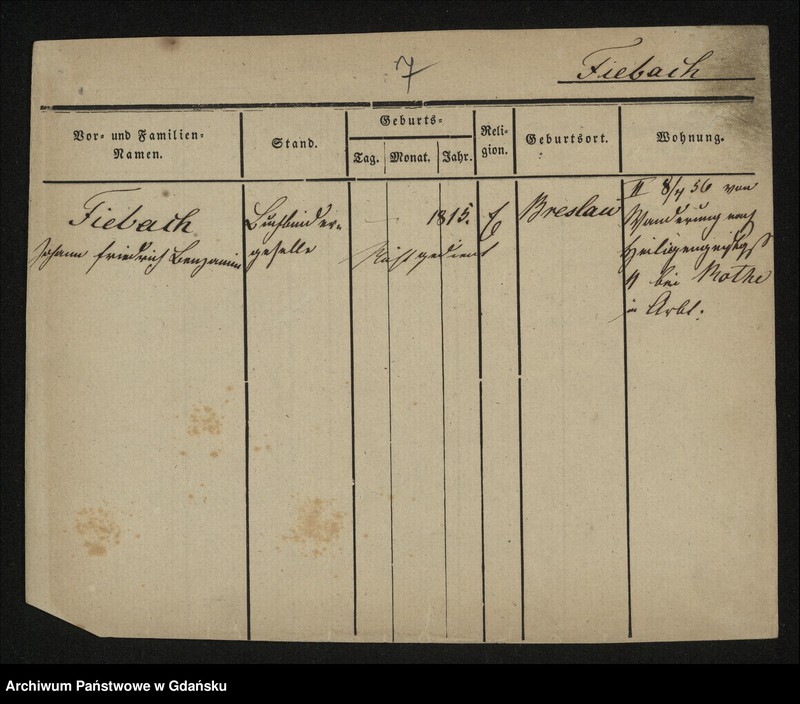 7
Fiebach
Vor- und Familien-
Namen.
Stand.
Geburts-
Tag.
Monat.
Jahr.
Reli-
gion.
Geburtsort.
Wohnung.
Fiebach
Johann Friedrich Benzamin
Buchbinder-
geselle
1815.
Nicht gedient
E
Breslau
II 8/4 56 von
Wanderung nach
Heiligengeistg
4 bei Rothe
in Arbt.
Archiwum Państwowe w Gdańsku